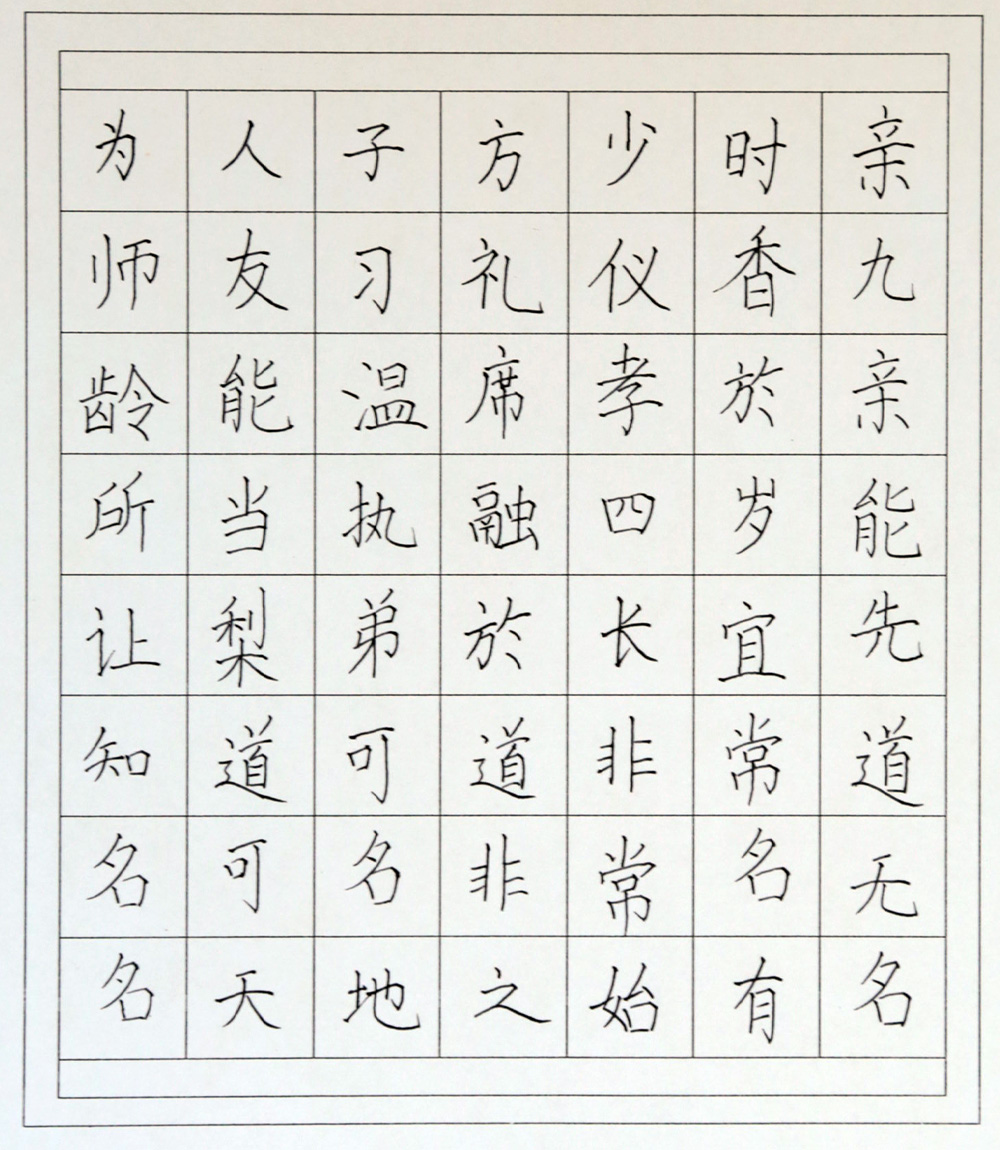 为人子方少时亲
师友习礼仪香九
龄能温席孝於亲
所当执融四岁能
让梨弟於长宜先
知道可道非常道
名可名非常名无
名天地之始有名